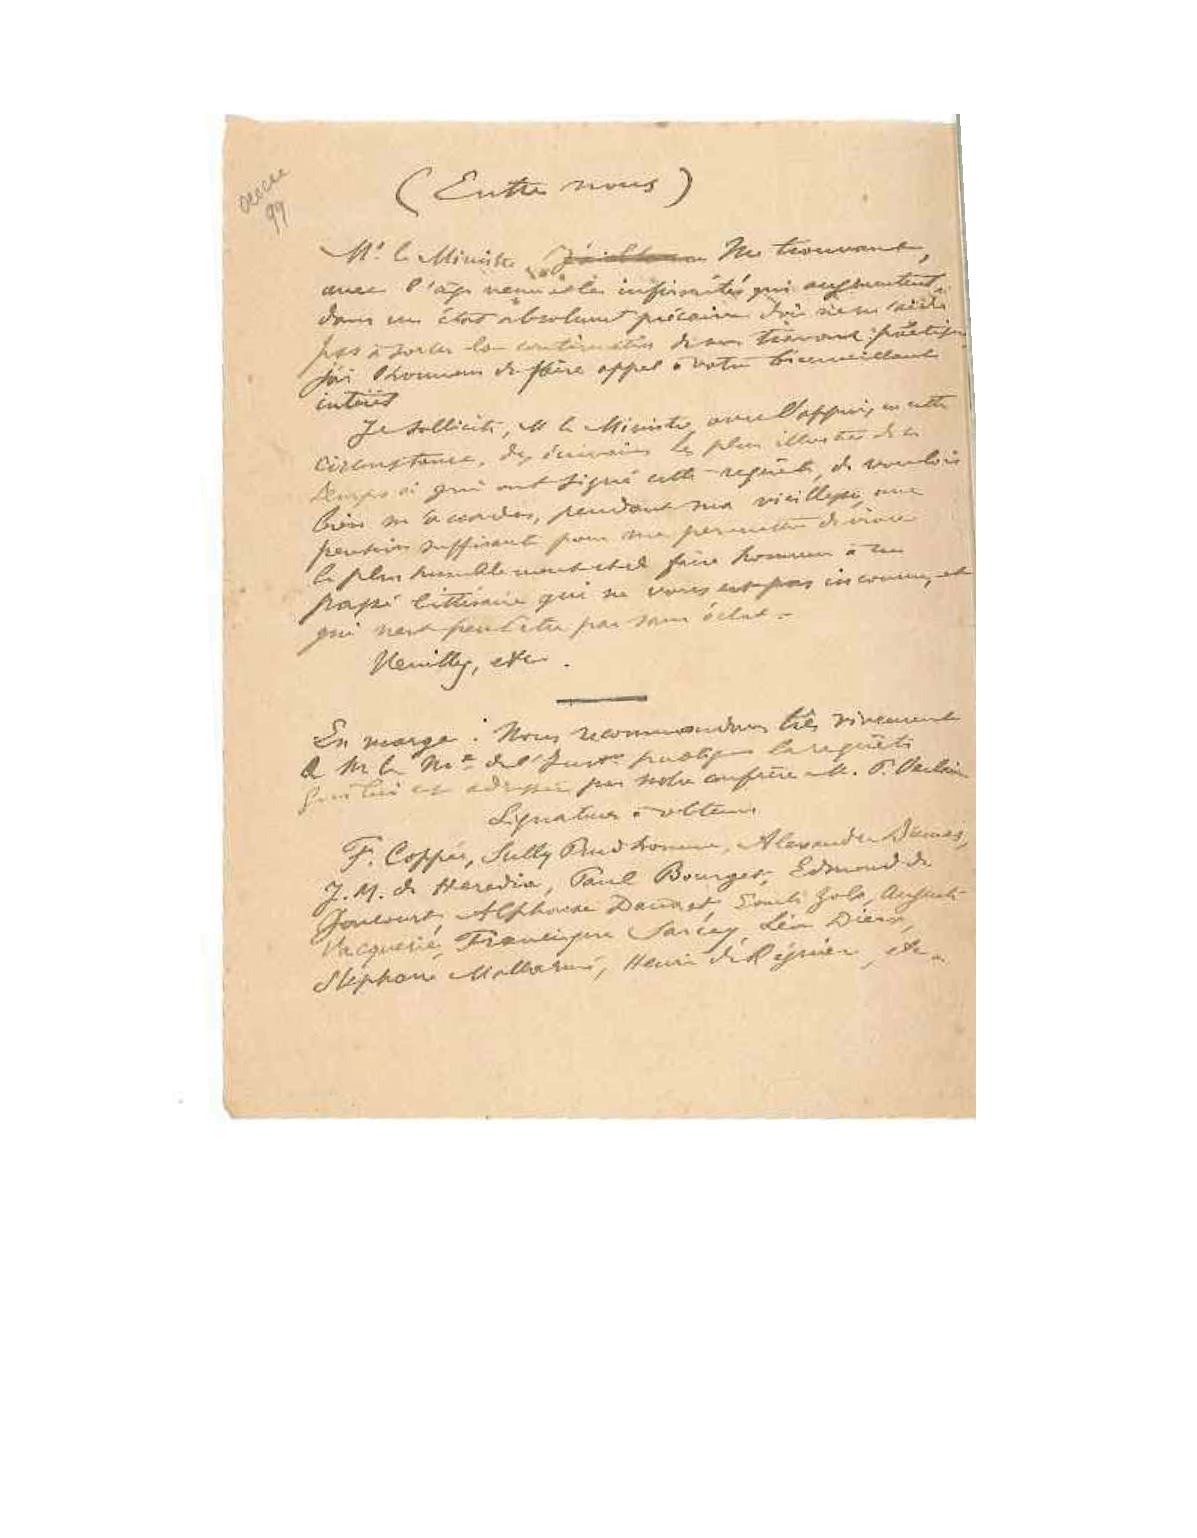 (Entre nous)
99
Mr le Ministre, Me trouvant,
avec l'âge venu et les infirmités qui augmentent,
dans un état absolument précaire
pas à la continuation de mes travaux poétiques
j'ai l'honneur de faire appel à votre bienveillant
intérêt
Je sollicite, M le Ministre, avec l'appui, en cette
circonstance, des écrivains les plus illustres de ce
temps ci qui ont signé cette requête, de vouloir
bien m'accorder, pendant ma vieillesse, une
pension suffisante pour me permettre de vivre
le plus humblement et de faire honneur à un
passé littéraire qui ne vous est pas inconnu, et
qui n'est peut être pas sans éclat.
Neuilly, etc.
En marge : Nous recommandons très vivement
à M le Mre de l'Instr. publique la requête
qui lui est adressée par notre confrère M. P. Verlaine
Signatures à obtenir
F. Coppée, Sully Prudhomme, Alexandre Dumas,
J. M. de Heredia, Paul Bourget, Edmond de
Goncourt, Alphonse Daudet, Emile Zola, Auguste
Vacquerie, Francisque Sarcey, Léon Dierx,
Stéphane Mallarmé, Henri de Régnier, etc.